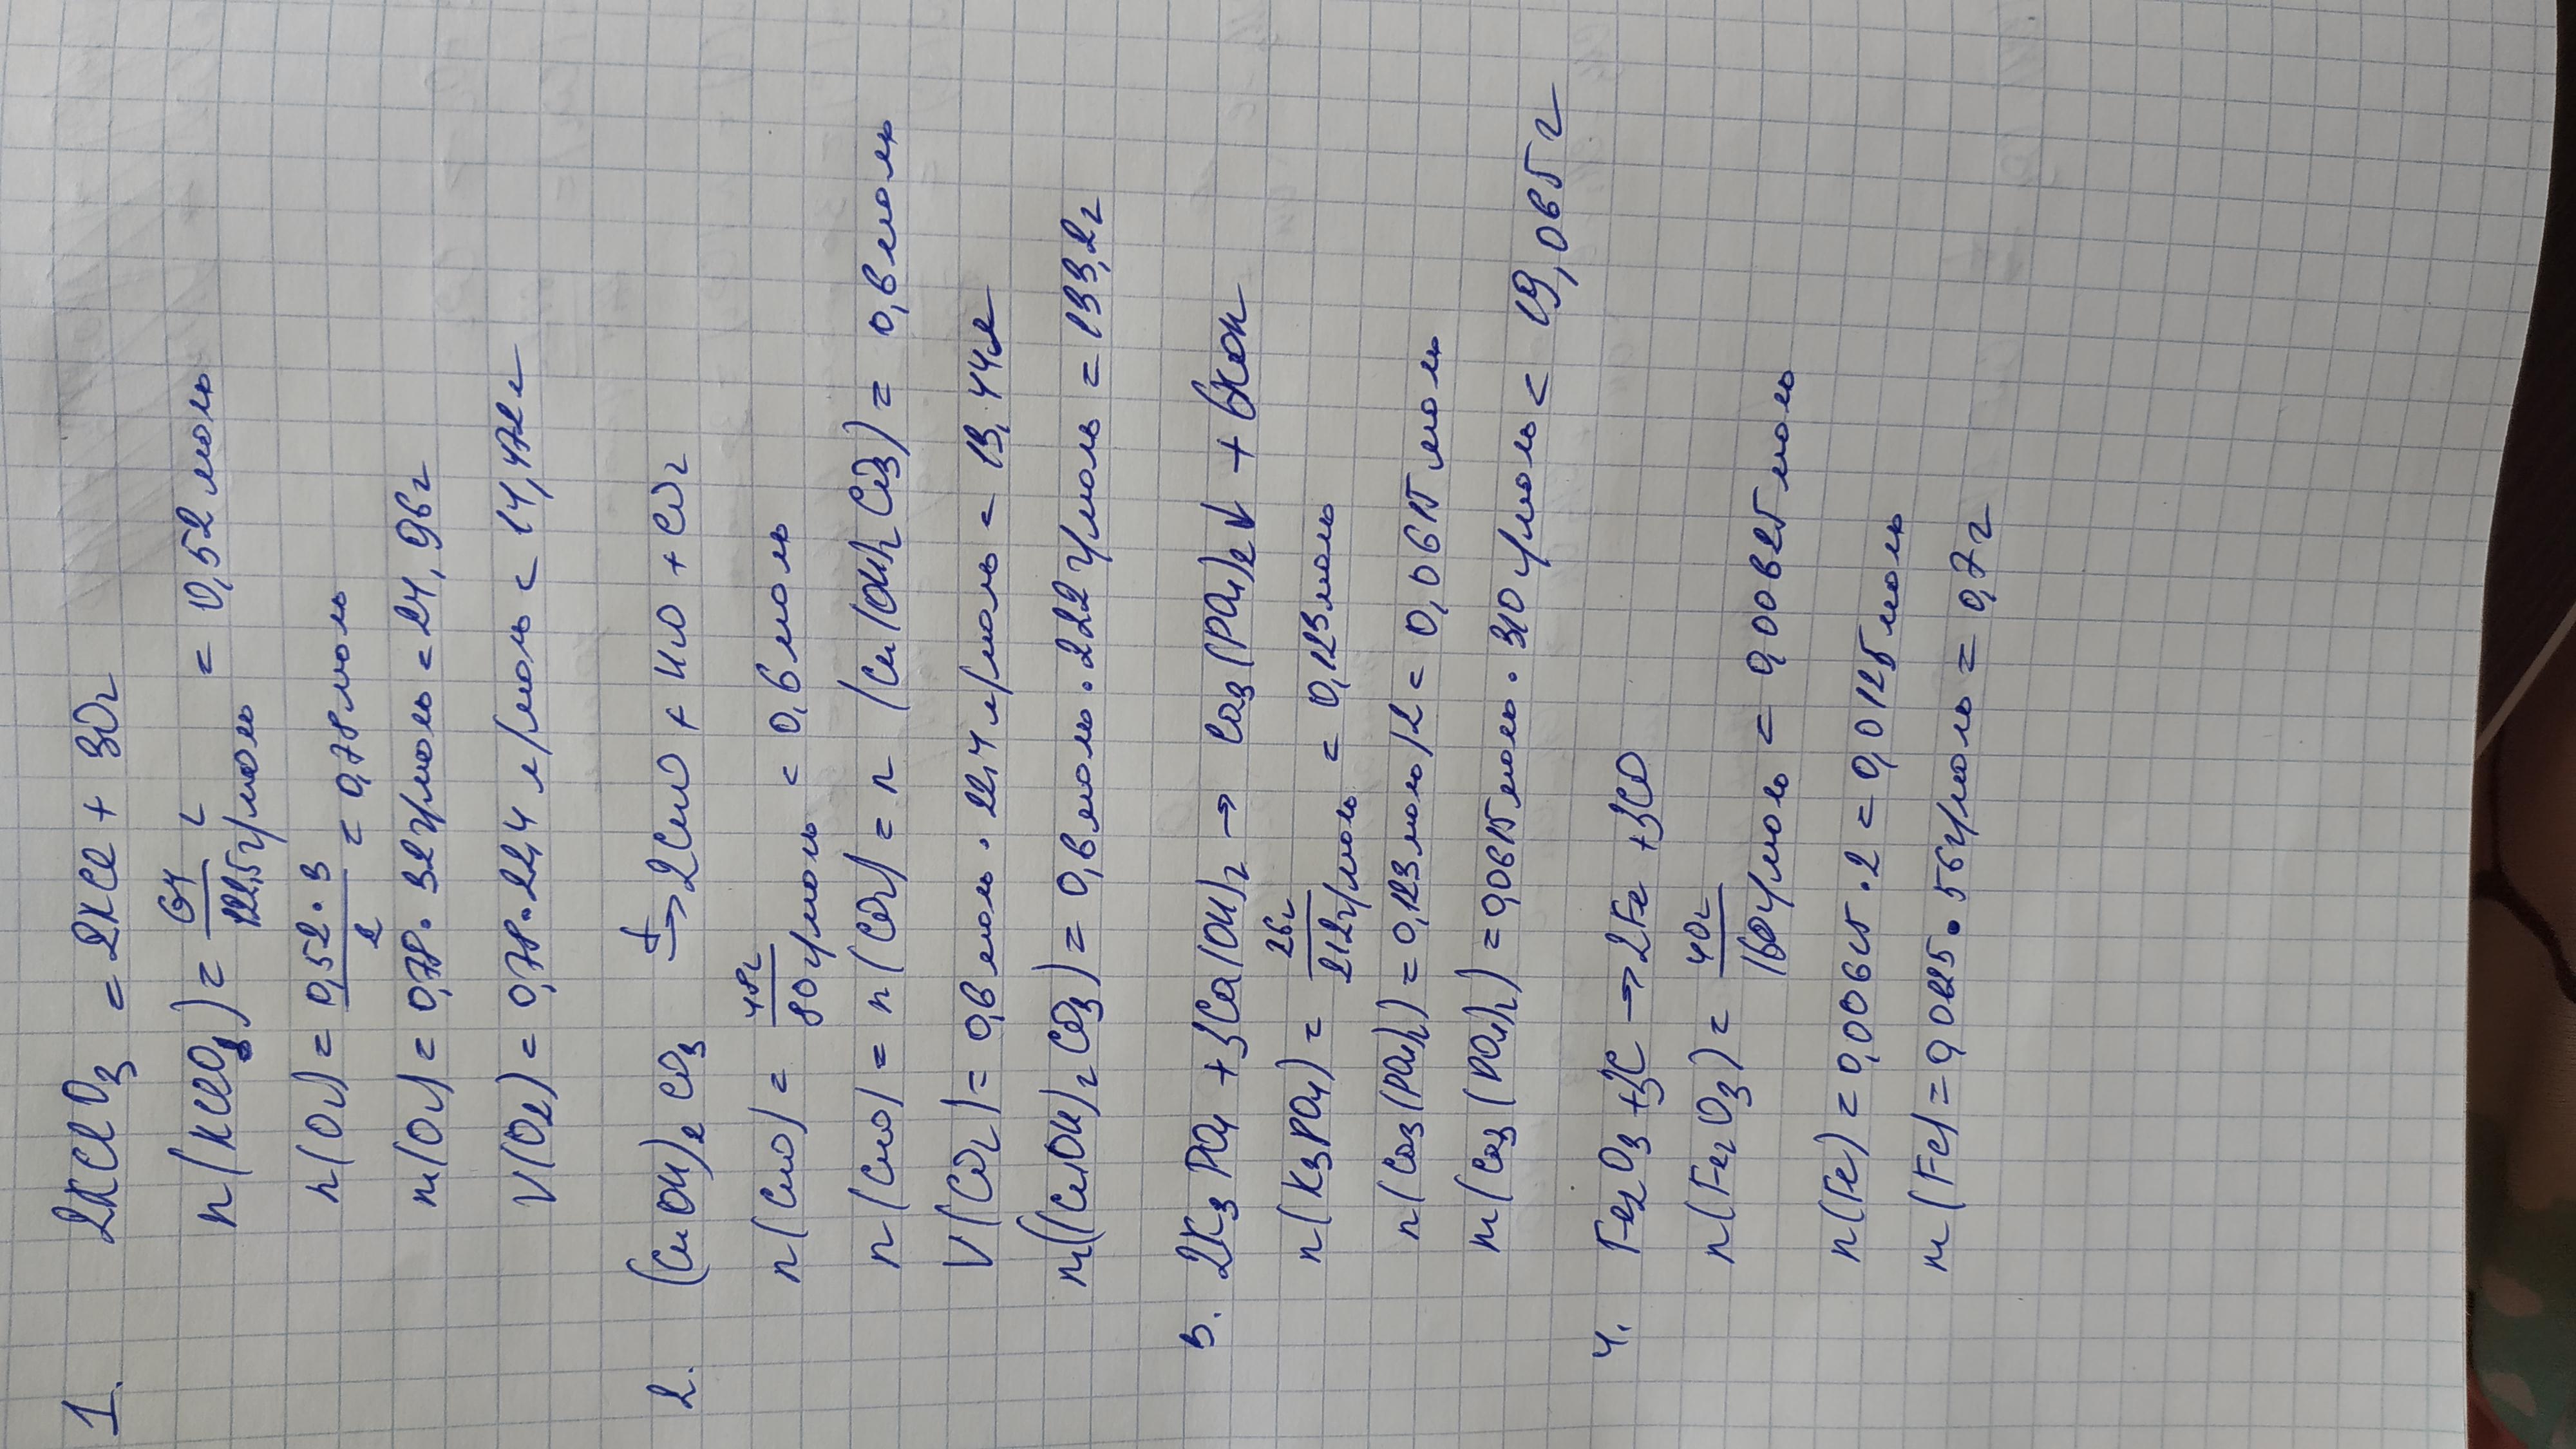 1. 2KClO3 = 2KCl + 3O2
n(KClO3) = 64 г / 122,5 г/моль = 0,52 моль
n(O2) = 0,52 · 3 / 2 = 0,78 моль
m(O2) = 0,78 · 32 г/моль = 24,96 г
V(O2) = 0,78 · 22,4 л/моль = 17,472 л
2. (CuOH)2CO3 t→ 2CuO + H2O + CO2
n(CuO) = 48 г / 80 г/моль = 0,6 моль
n(CuO) = n(CO2) = n (Cu(OH)2CO3) = 0,6 моль
V(CO2) = 0,6 моль · 22,4 л/моль = 13,44 л
m((CuOH)2CO3) = 0,6 моль · 222 г/моль = 133,2 г
3. 2K3PO4 + 3Ca(OH)2 → Ca3(PO4)2↓ + 6KOH
n(K3PO4) = 26 г / 212 г/моль = 0,123 моль
n(Ca3(PO4)2) = 0,123 моль/2 = 0,0615 моль
m(Ca3(PO4)2) = 0,0615 моль · 310 г/моль = 19,065 г
4. Fe2O3 + 3C → 2Fe + 3CO
n(Fe2O3) = 40 г / 160 г/моль = 0,00625 моль
n(Fe) = 0,00625 · 2 = 0,0125 моль
m(Fe) = 0,0125 · 56 г/моль = 0,7 г